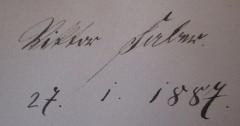 Viktor Faber.
27. 1. 1887.